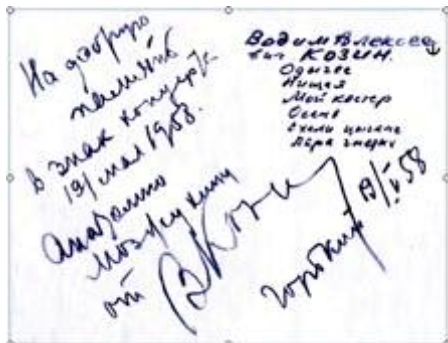 На добрую
память
в знак концерта
19/мая 1958.
Анатолию
Мозжухину
от ВКозин
Вадим Алексее
вич КОЗИН.
Одыгес
Нищая
Мой костер
Осень
Ехали цыгане
Пара гнедых
Горький 19/V 58